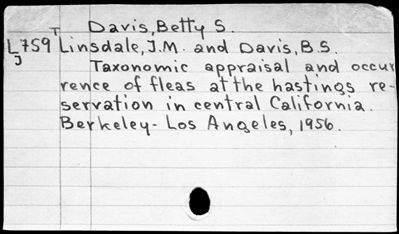 T Davis, Betty S.
L759 Linsdale, J.M. and Davis, B.S.
J Taxonomic appraisal and occur
rence of fleas at the hastings re-
servation in central California.
Berkeley- Los Angeles, 1956.